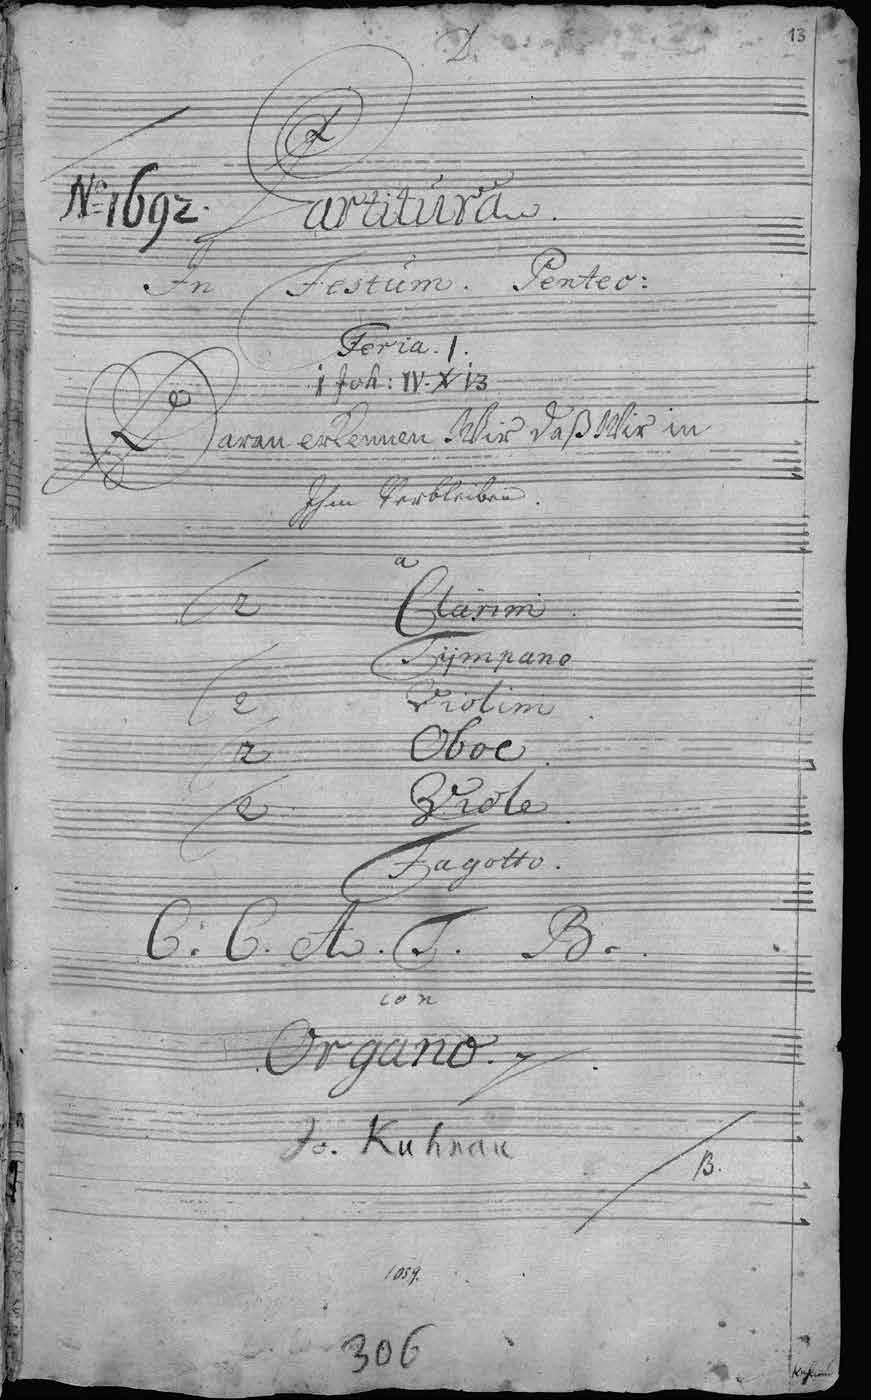 D.
13
Partitura.
No 1692.
In Festum. Penteo:
Feria. 1.
1 Joh: IV. X 13
Daran erkennen Wir daß Wir in
Ihm Verbleiben.
a
2 Clarini.
Tijmpano
2 Violini
2 Oboe.
2 Viole.
Fagotto.
C. C. A. T. B.
con
Organo.
Jo. Kuhnau
B.
1059.
306